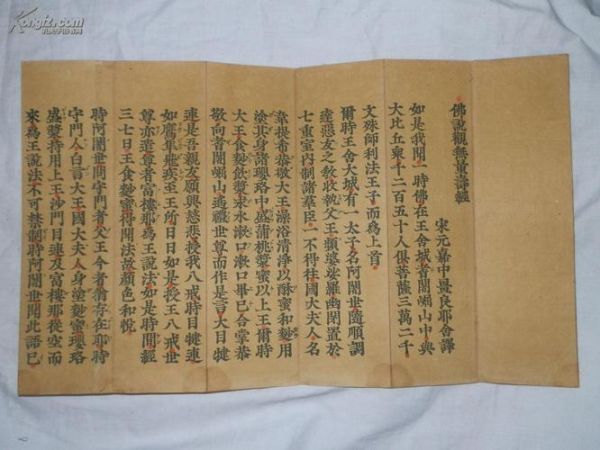 佛說觀無量壽經
宋元嘉中畺良耶舍譯
如是我聞一時佛在王舍城耆闍崛山中與
大比丘衆千二百五十人俱菩薩三萬二千
文殊師利法王子而爲上首
爾時王舍大城有一太子名阿闍世隨順調
達惡友之敎收執父王頻婆娑羅幽閉置於
七重室內制諸羣臣一不得往國大夫人名
韋提希恭敬大王澡浴淸淨以酥蜜和麨用
塗其身諸瓔珞中盛蒲桃漿蜜以上王爾時
大王食麨飮漿求水漱口漱口畢已合掌恭
敬向耆闍崛山遙禮世尊而作是言大目犍
連是吾親友願興慈悲授我八戒時目犍連
如鷹隼飛疾至王所日日如是授王八戒世
尊亦遣尊者富樓那爲王說法如是時閒經
三七日王食麨蜜得聞法故顏色和悅
時阿闍世問守門者父王今者猶存在耶時
守門人白言大王國大夫人身塗麨蜜瓔珞
盛漿持用上王沙門目連及富樓那從空而
來爲王說法不可禁制時阿闍世聞此語已
Kongfz.com